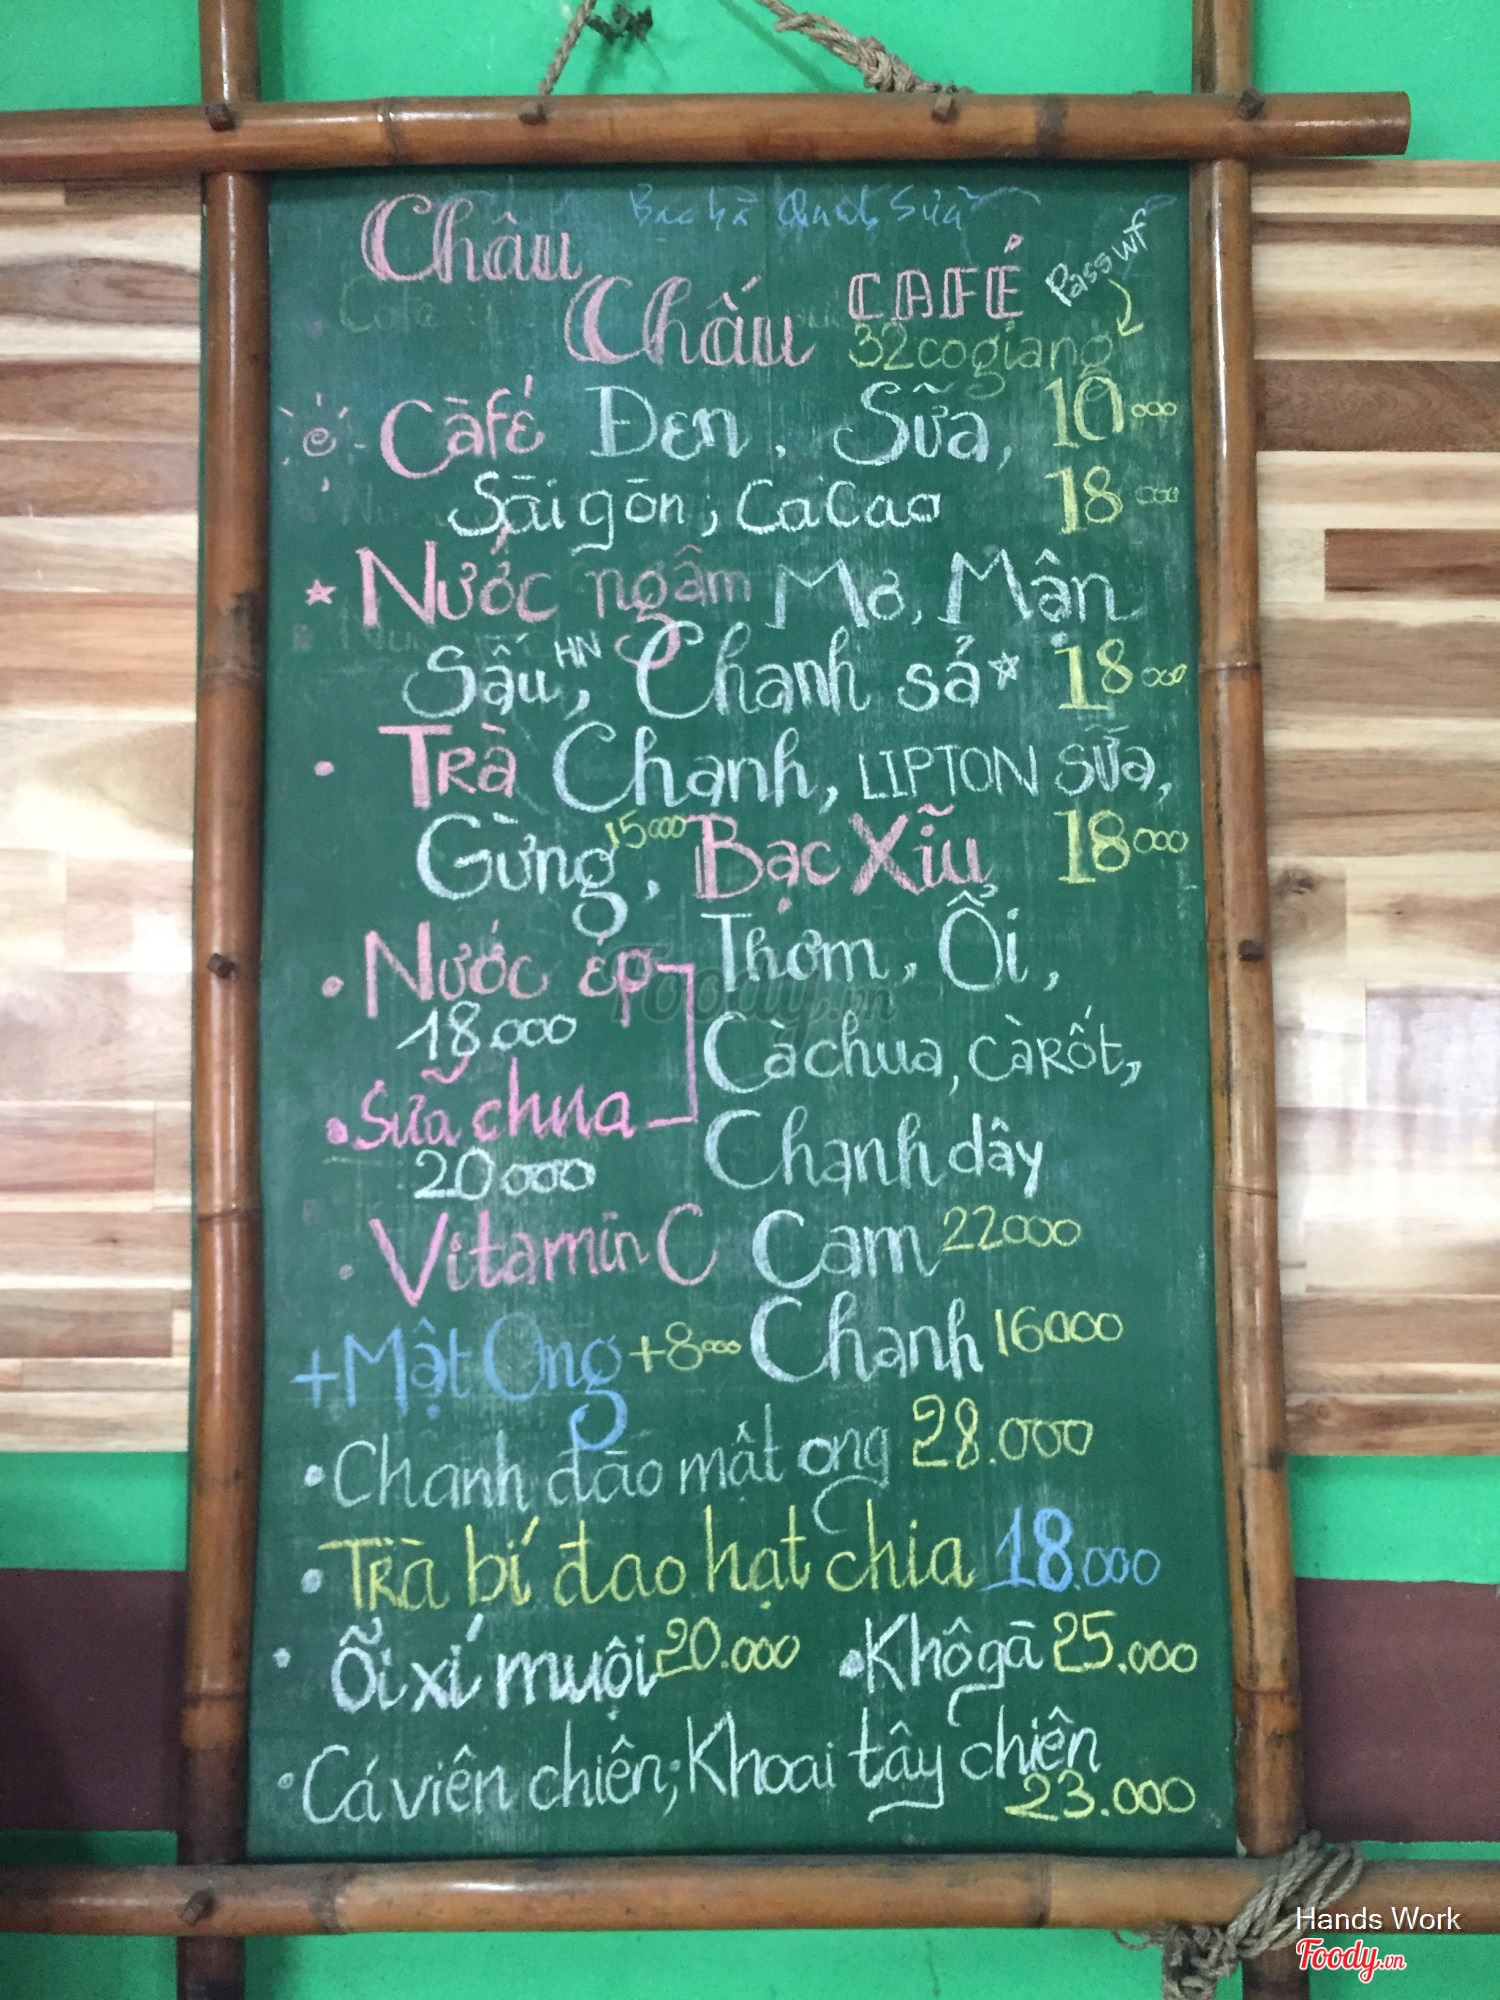 Châu
Chấu CAFÉ
Pass wf
32cogiang
Càfé Đen, Sữa, 10.000
Sài gòn; Ca Cao 18.000
Nước ngâm Mơ, Mận
Sấu HN, Chanh sả 18.000
Trà Chanh, LIPTON SỮA,
Gừng 15000, Bạc Xĩu 18000
Nước ép Thơm, Ổi,
18.000 Càchua, CàRốt,
Sữa chua Chanh dây
20.000
Vitamin C Cam 22000
+ Mật Ong +8000 Chanh 16000
Chanh đào mật ong 28.000
Trà bí đao hạt chia 18.000
Ổi xí muội 20.000 Khô gà 25.000
Cá viên chiên; Khoai tây chiên
23.000
Foody.vn
Hands Work
Foody.vn